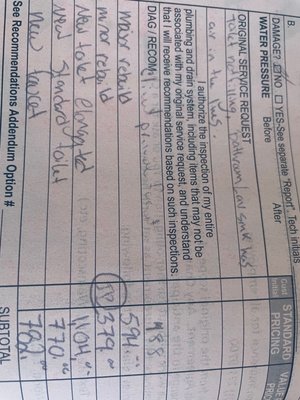 B.
DAMAGE? ☑ NO ☐ YES-See separate "Report". Tech initials
WATER PRESSURE Before After
ORIGINAL SERVICE REQUEST
Toilet not filling, bathroom Lav sink has
air in the lines.
I authorize the inspection of my entire
plumbing and drain system, including items that may not be
associated with my original service request, and understand
that I will receive recommendations based on such inspections.
DIAG / RECOM
Cust Initial STANDARD PRICING
488
major rebuild 594.
minor rebuild 379.00
New toilet Elongated 1104.00
New Standard toilet 770.00
New faucet 792
See Recommendations Addendum Option # SUBTOTAL